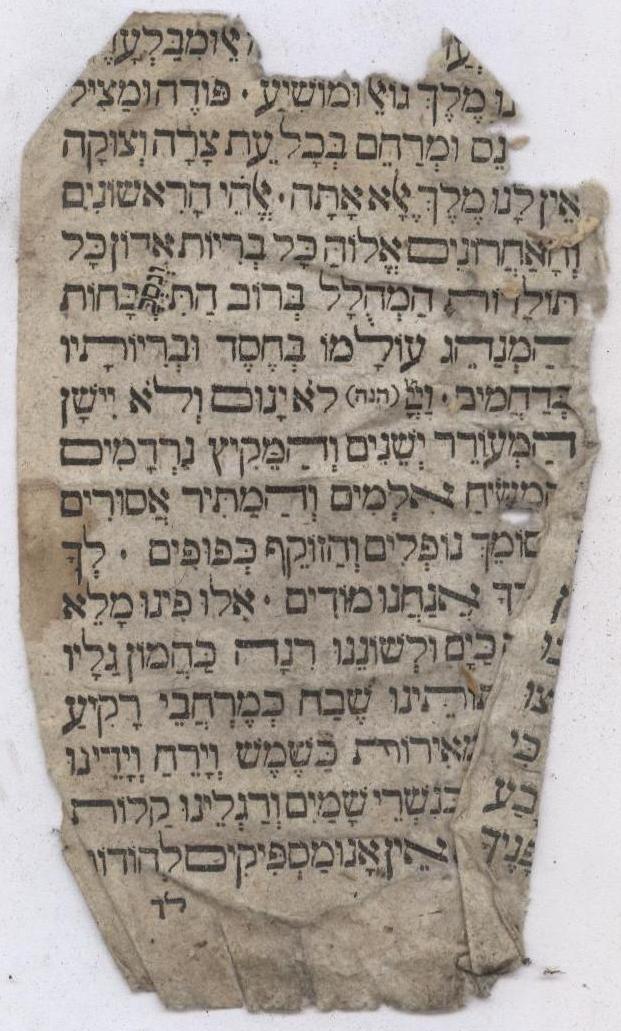 אֵ וּמִבַּלְעָדֶ
נוּ מֶלֶךְ גּוֹאֵל וּמוֹשִׁיעַ · פּוֹדֶה וּמַצִּיל
נֵס וּמְרַחֵם בְּכָל עֵת צָרָה וְצוּקָה
אֵין לָנוּ מֶלֶךְ אֶלָּא אָתָּה · אֱלֹהֵי הָרִאשׁוֹנִים
וְהָאַחֲרוֹנִים אֱלוֹהַּ כָּל בְּרִיּוֹת אֲדוֹן כָּל
תּוֹלָדוֹת הַמְהֻלָּל בְּרוֹב הַתִּשְׁבָּחוֹת
הַמְנַהֵג עוֹלָמוֹ בְּחֶסֶד וּבְרִיּוֹתָיו
בְּרַחֲמִים · וַיְיָ (הנה) לֹא יָנוּם וְלֹא יִישָׁן
הַמְעוֹרֵר יְשֵׁנִים וְהַמֵּקִיץ נִרְדָּמִים
הַמֵּשִׂיחַ אִלְּמִים וְהַמַּתִּיר אֲסוּרִים
סוֹמֵךְ נוֹפְלִים וְהַזּוֹקֵף כְּפוּפִים · לְךָ
דְּךָ אֲנַחְנוּ מוֹדִים · אִלּוּ פִינוּ מָלֵא
כַיָּם וּלְשׁוֹנֵנוּ רִנָּה כַּהֲמוֹן גַּלָּיו
תוֹתֵינוּ שֶׁבַח כְּמֶרְחֲבֵי רָקִיעַ
מְאִירוֹת כַּשֶּׁמֶשׁ וְיָרֵחַ וְיָדֵינוּ
כְּנִשְׁרֵי שָׁמַיִם וְרַגְלֵינוּ קַלּוֹת
אֵין אָנוּ מַסְפִּיקִים לְהוֹדוֹת
לך